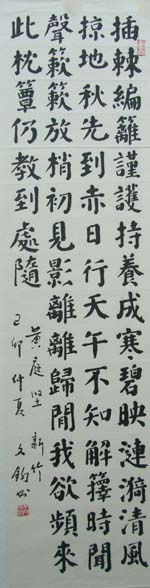 插棘編籬謹護持養成寒碧映漣漪清風
掠地秋先到赤日行天午不知解籜時聞
聲簌簌放梢初見影離離歸閒我欲頻來
此枕簟仍教到處隨
黃庭堅 新竹
己卯仲夏 文